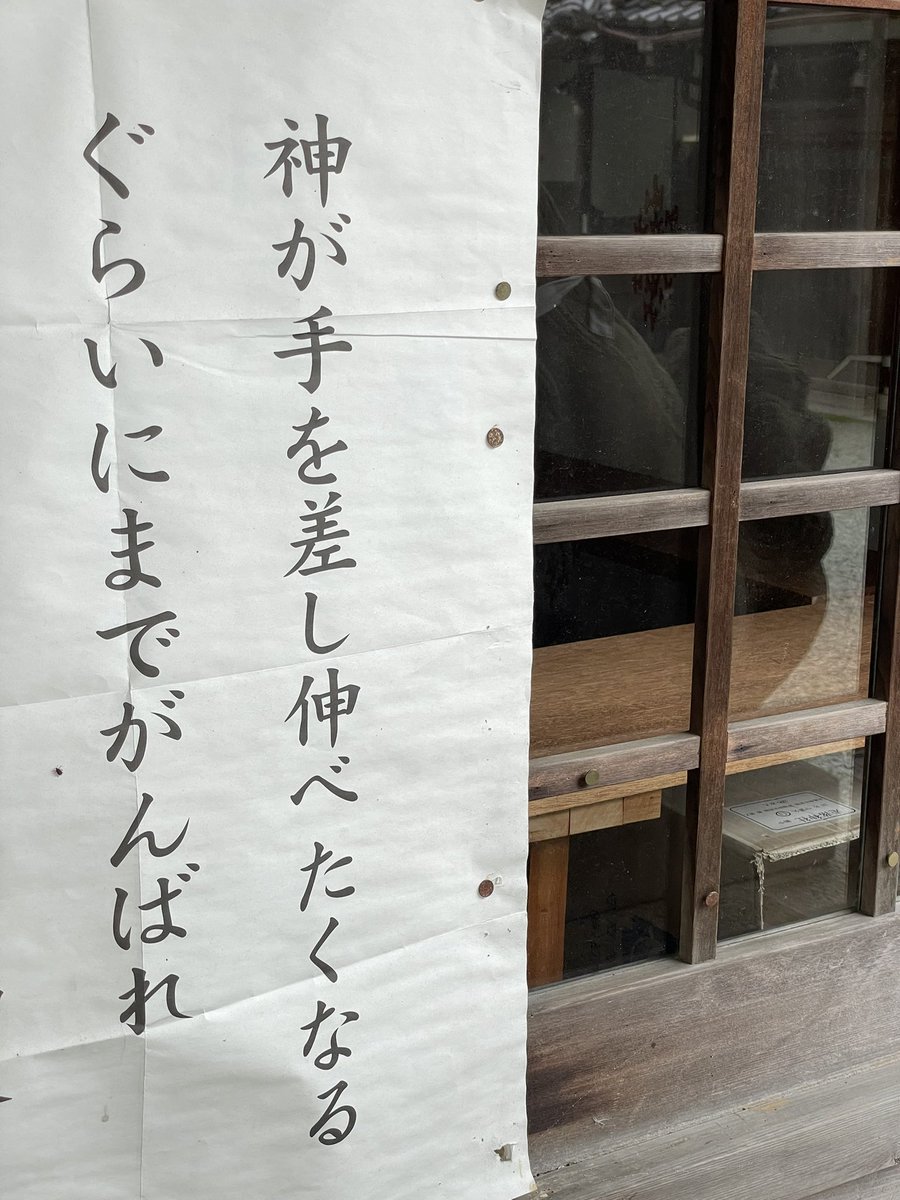 神が手を差し伸べたくなる
ぐらいにまでがんばれ